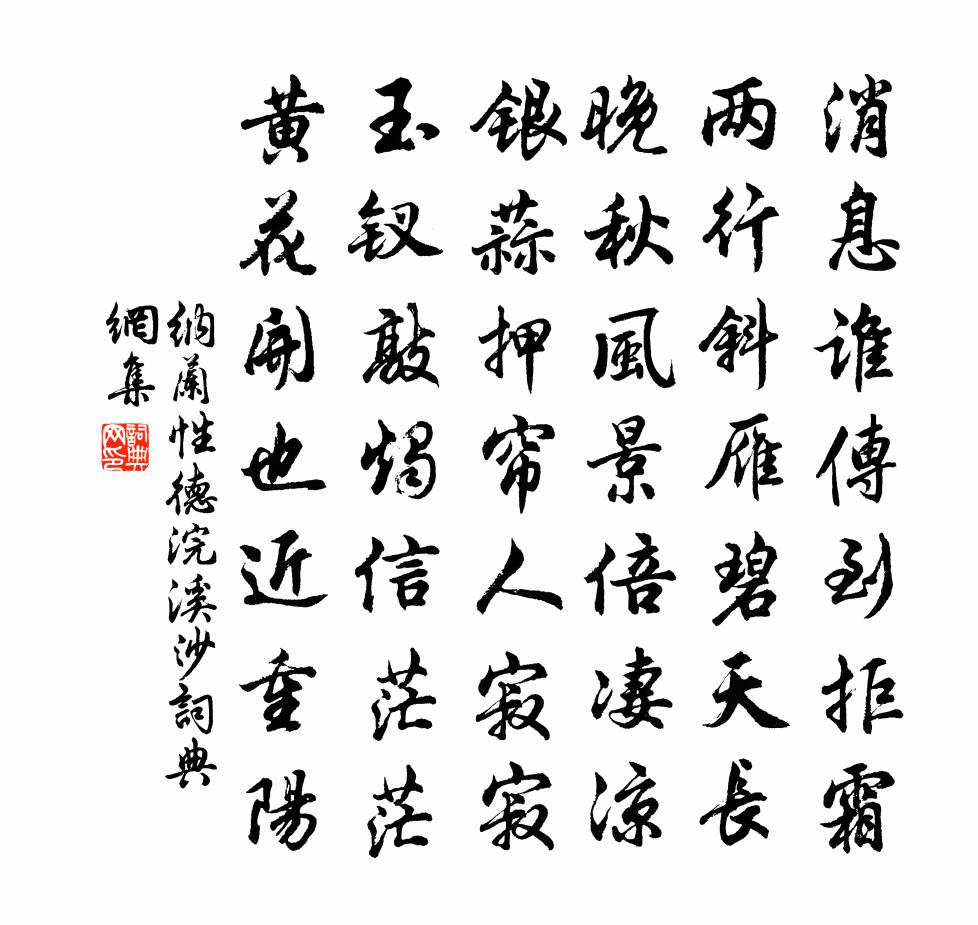 消息誰傳到拒霜
两行斜雁碧天長
晚秋風景倍凄凉
銀蒜押帘人寂寂
玉钗敲燭信茫茫
黄花開也近重陽
納蘭性德浣溪沙詞典
網集
詞典
网印